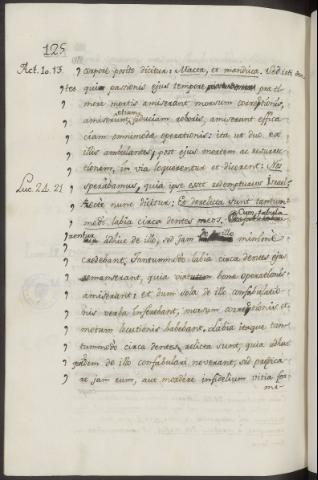 125
Act. 10. 13.
corpore posito dicitur: Macta, et manduca. Sed isti den-
tes quia passionis ejus tempore prae ti-
more mortis amiserant morsum correptionis,
amiserunt etiam fiduciam roboris, amiserant effica-
ciam omnimodae operationis: ita ut duo ex
illis ambulantes, post ejus mortem ac resurrec-
tionem, in via loquerentur et dicerent: Nos
Luc. 24. 21.
sperabamus, quia ipse esset redempturus Israel.
Recte nunc dicitur: Et derelicta sunt tantum-
modo labia circa dentes meos. Cum fabula-
rentur adhuc de illo, sed jam illo minime
credebant, Tantummodo labia circa dentes ejus
remanserant, quia virtutem bonae operationis
amiserant: et dum sola de illo confabulatio-
nis verba inferebant, morsum correptionis et
morum locutionis habebant. Labia itaque tan-
tummodo circa dentes relicta sunt, quia adhuc
quidem de illo confabulari noverant, sed praedica-
re jam eum, aut mordere infidelium vitia for-
mi-